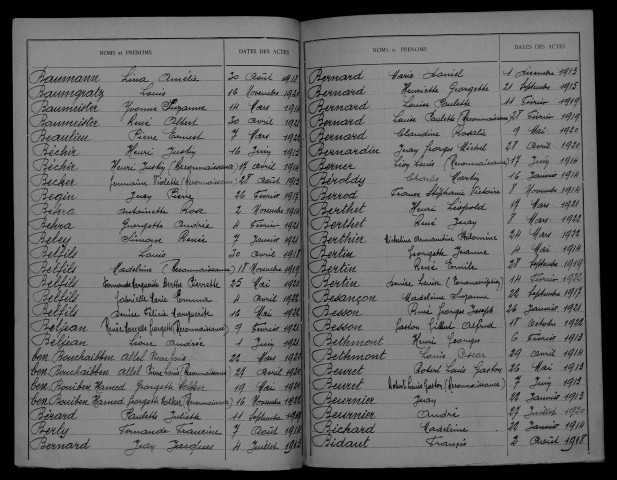 NOMS et PRÉNOMS DATES DES ACTES
Baumann Lina Amélie 30 Août 1918
Baumgratz Louis 16 Novembre 1920
Baumeister Yvonne Suzanne 14 Mars 1914
Baumeister René Albert 30 Avril 1921
Beaulieu Pierre Ernest 7 Mars 1920
Béchir Henri Justin 16 Juin 1913
Béchir Henri Justin (Reconnaissance) 17 Avril 1914
Becker Germaine Violette (Reconnaissance) 28 Août 1913
Begin Jean Pierre 26 Février 1917
Behra Antoinette Rose 2 Novembre 1914
Behra Georgette Andrée 4 Février 1921
Beley Simone Renée 7 Janvier 1921
Belfils Louis 30 Avril 1918
Belfils Madeleine (Reconnaissance) 18 Novembre 1919
Belfils Fernande Marguerite Berthe Pierrette 25 Mai 1920
Belfils Gabrielle Marie Emma 4 Avril 1922
Belfils Denise Félicie Marguerite 16 Mai 1922
Beljean Renée Marcelle Georgette (Reconnaissance) 9 Février 1921
Beljean Léone Andrée 1 Juin 1921
ben Bouchaibben Allel Pierre Louis 22 Mars 1920
ben Bouchaibben Allel Pierre Louis (Reconnaissance) 27 Avril 1920
ben Bouiben Hamed Georgette 19 Mai 1920
ben Bouiben Hamed Georgette (Reconnaissance) 16 Novembre 1922
Bérard Paulette Juliette 11 Septembre 1919
Berly Fernande Francine 7 Août 1914
Bernard Jean Jacques 4 Juillet 1913
NOMS et PRÉNOMS DATES DES ACTES
Bernard Marie Daniel 1 Décembre 1913
Bernard Henriette Georgette 21 Septembre 1915
Bernard Louise Paulette 11 Février 1919
Bernard Louise Paulette (Reconnaissance) 28 Février 1919
Bernard Claudine Rosalie 9 Mai 1920
Bernardin Jean Georges Michel 28 Avril 1920
Berner Léon Louis (Reconnaissance) 17 Juin 1914
Béroldy Charles Martin 16 Janvier 1914
Berrod France Stéphanie Victoire 8 Novembre 1914
Berthet Henri Léopold 19 Mars 1921
Berthet René Jean 8 Mars 1922
Berthier Micheline Antoinette 24 Mars 1922
Bertin Georgette Jeanne 4 Mai 1914
Bertin René Emile 28 Septembre 1919
Bertin Denise Louise 14 Février 1922
Besançon Madeleine Suzanne 22 Septembre 1917
Besson René Georges Joseph 26 Janvier 1921
Besson Gaston Gilbert Alfred 18 Octobre 1922
Bethmont Henri Georges 6 Février 1913
Bethmont Louis Oscar 29 Avril 1914
Beuret Robert Louis Gaston 26 Mai 1913
Beuret Robert Louis Gaston (Reconnaissance) 7 Juin 1913
Beurnier Jean 22 Janvier 1913
Beurnier André 27 Juillet 1920
Bichard Madeleine 22 Janvier 1914
Bidaut François 2 Août 1918